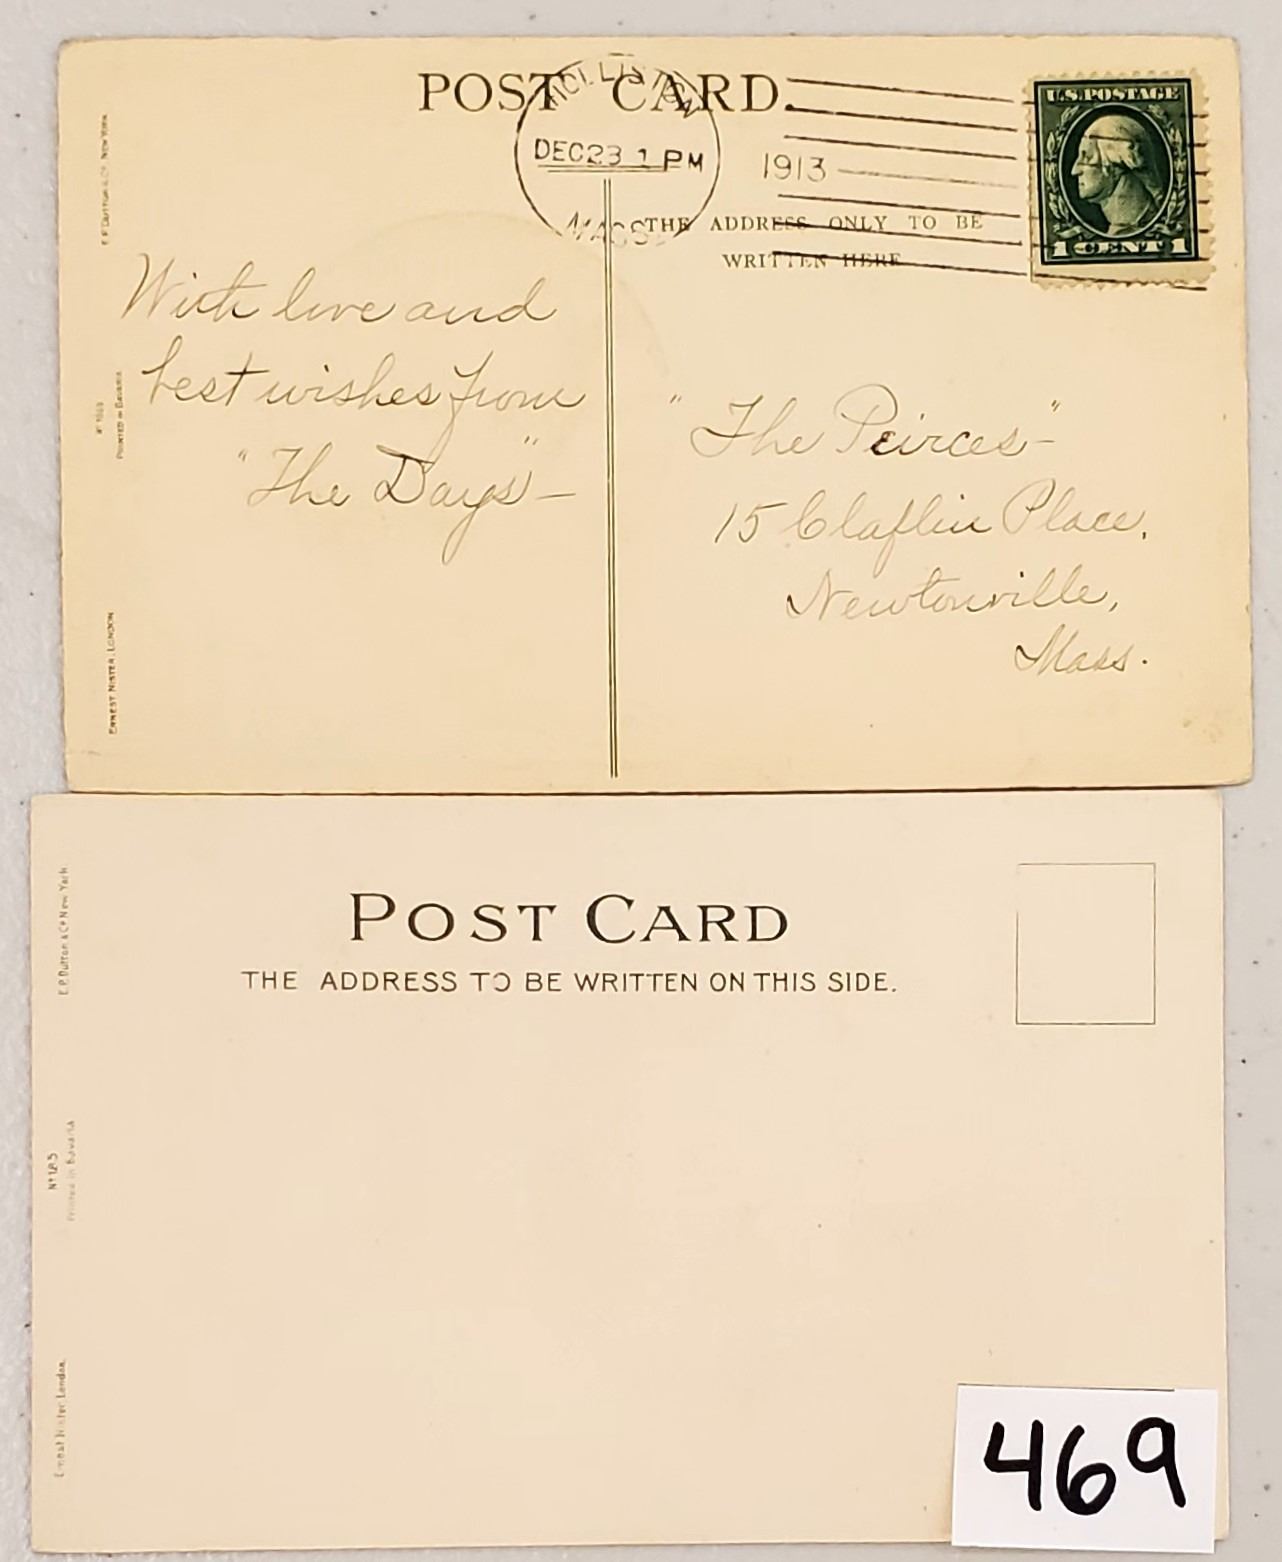 POST CARD.
HOLLISTON
DEC 23 1 PM
1913
MASS.
U.S. POSTAGE
1 CENT 1
THE ADDRESS ONLY TO BE
WRITTEN HERE
E.P. Dutton & Co. New York
Printed in Bavaria
Ernest Nister, London
With love and
best wishes from
"The Days" —
"The Peirces" —
15 Claflin Place,
Newtonville,
Mass.
POST CARD
THE ADDRESS TO BE WRITTEN ON THIS SIDE.
E.P. Dutton & Co. New York
No 185
Printed in Bavaria
Ernest Nister London.
469